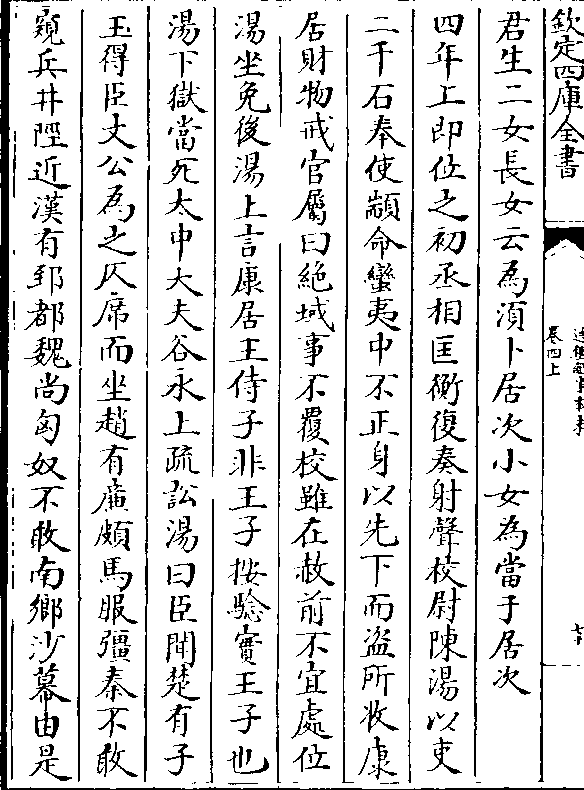 欽定四庫全書
卷四上
君生二女長女云為湏卜居次小女為當于居次
四年上即位之初丞相匡衡復奏射聲校尉陳湯以吏
二千石奉使顓命蠻夷中不正身以先下而盗所收康
居財物戒官屬曰絶域事不覆校雖在赦前不宜處位
湯坐免後湯上言康居王侍子非王子按驗實王子也
湯下獄當死太中大夫谷永上疏訟湯曰臣聞楚有子
玉得臣文公為之仄席而坐趙有廉頗馬服彊秦不敢
窺兵井陘近漢有郅都魏尚匈奴不敢南鄉沙幕由是